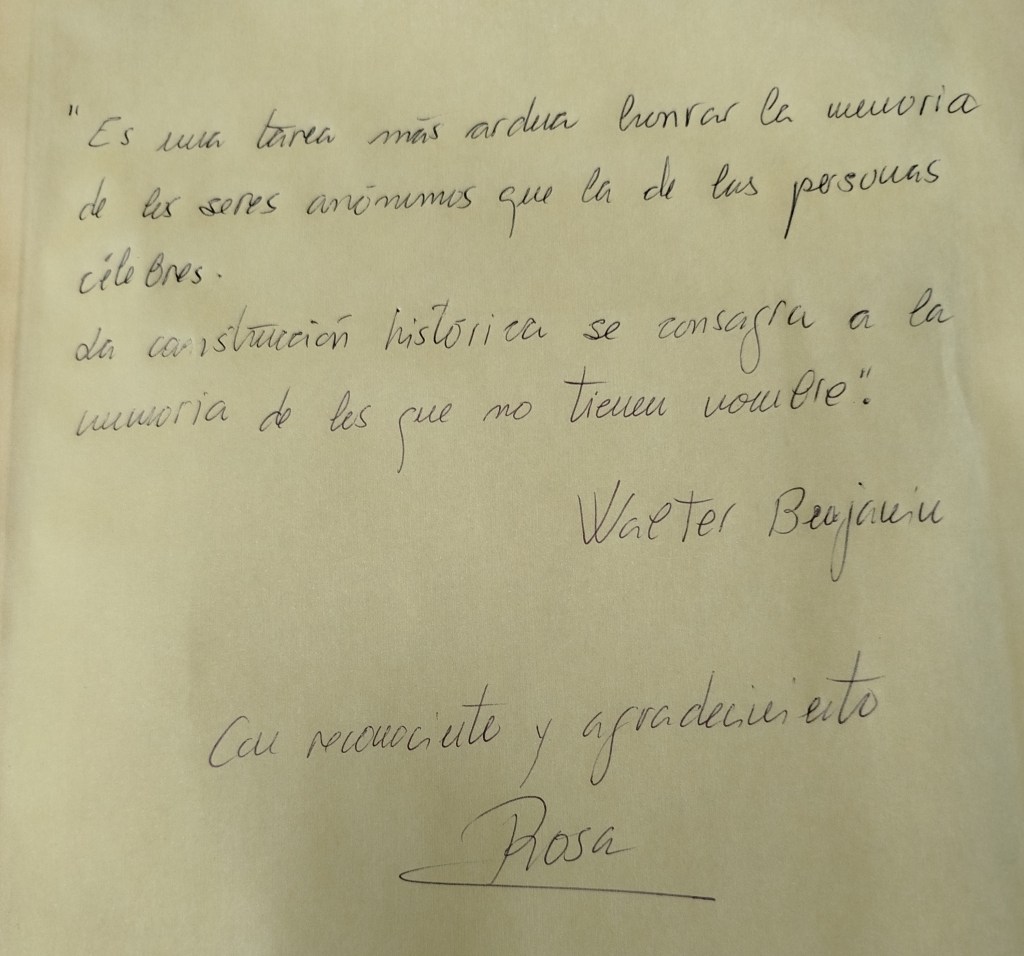 "Es una tarea más ardua honrar la memoria
de los seres anónimos que la de las personas
célebres.
La construcción histórica se consagra a la
memoria de los que no tienen nombre".
Walter Benjamin
Con reconociento y agradecimiento
Rosa